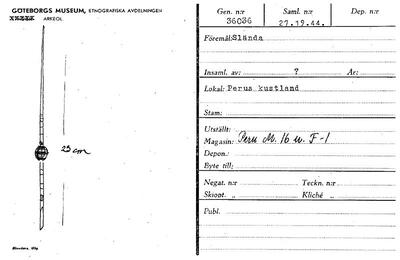 GÖTEBORGS MUSEUM, ETNOGRAFISKA AVDELNINGEN
ARKEOL.
25 cm
Gen. n:r
36036
Saml. n:r
27.19.44.
Dep. n:r
Föremål: Slända
Insaml. av: ? År:
Lokal: Perus kustland
Stam:
Utställt:
Magasin: Peru M. 16 u. F-1
Depon.:
Byte till:
Negat. n:r Teckn. n:r
Skiopt. „ Kliché „
Publ.